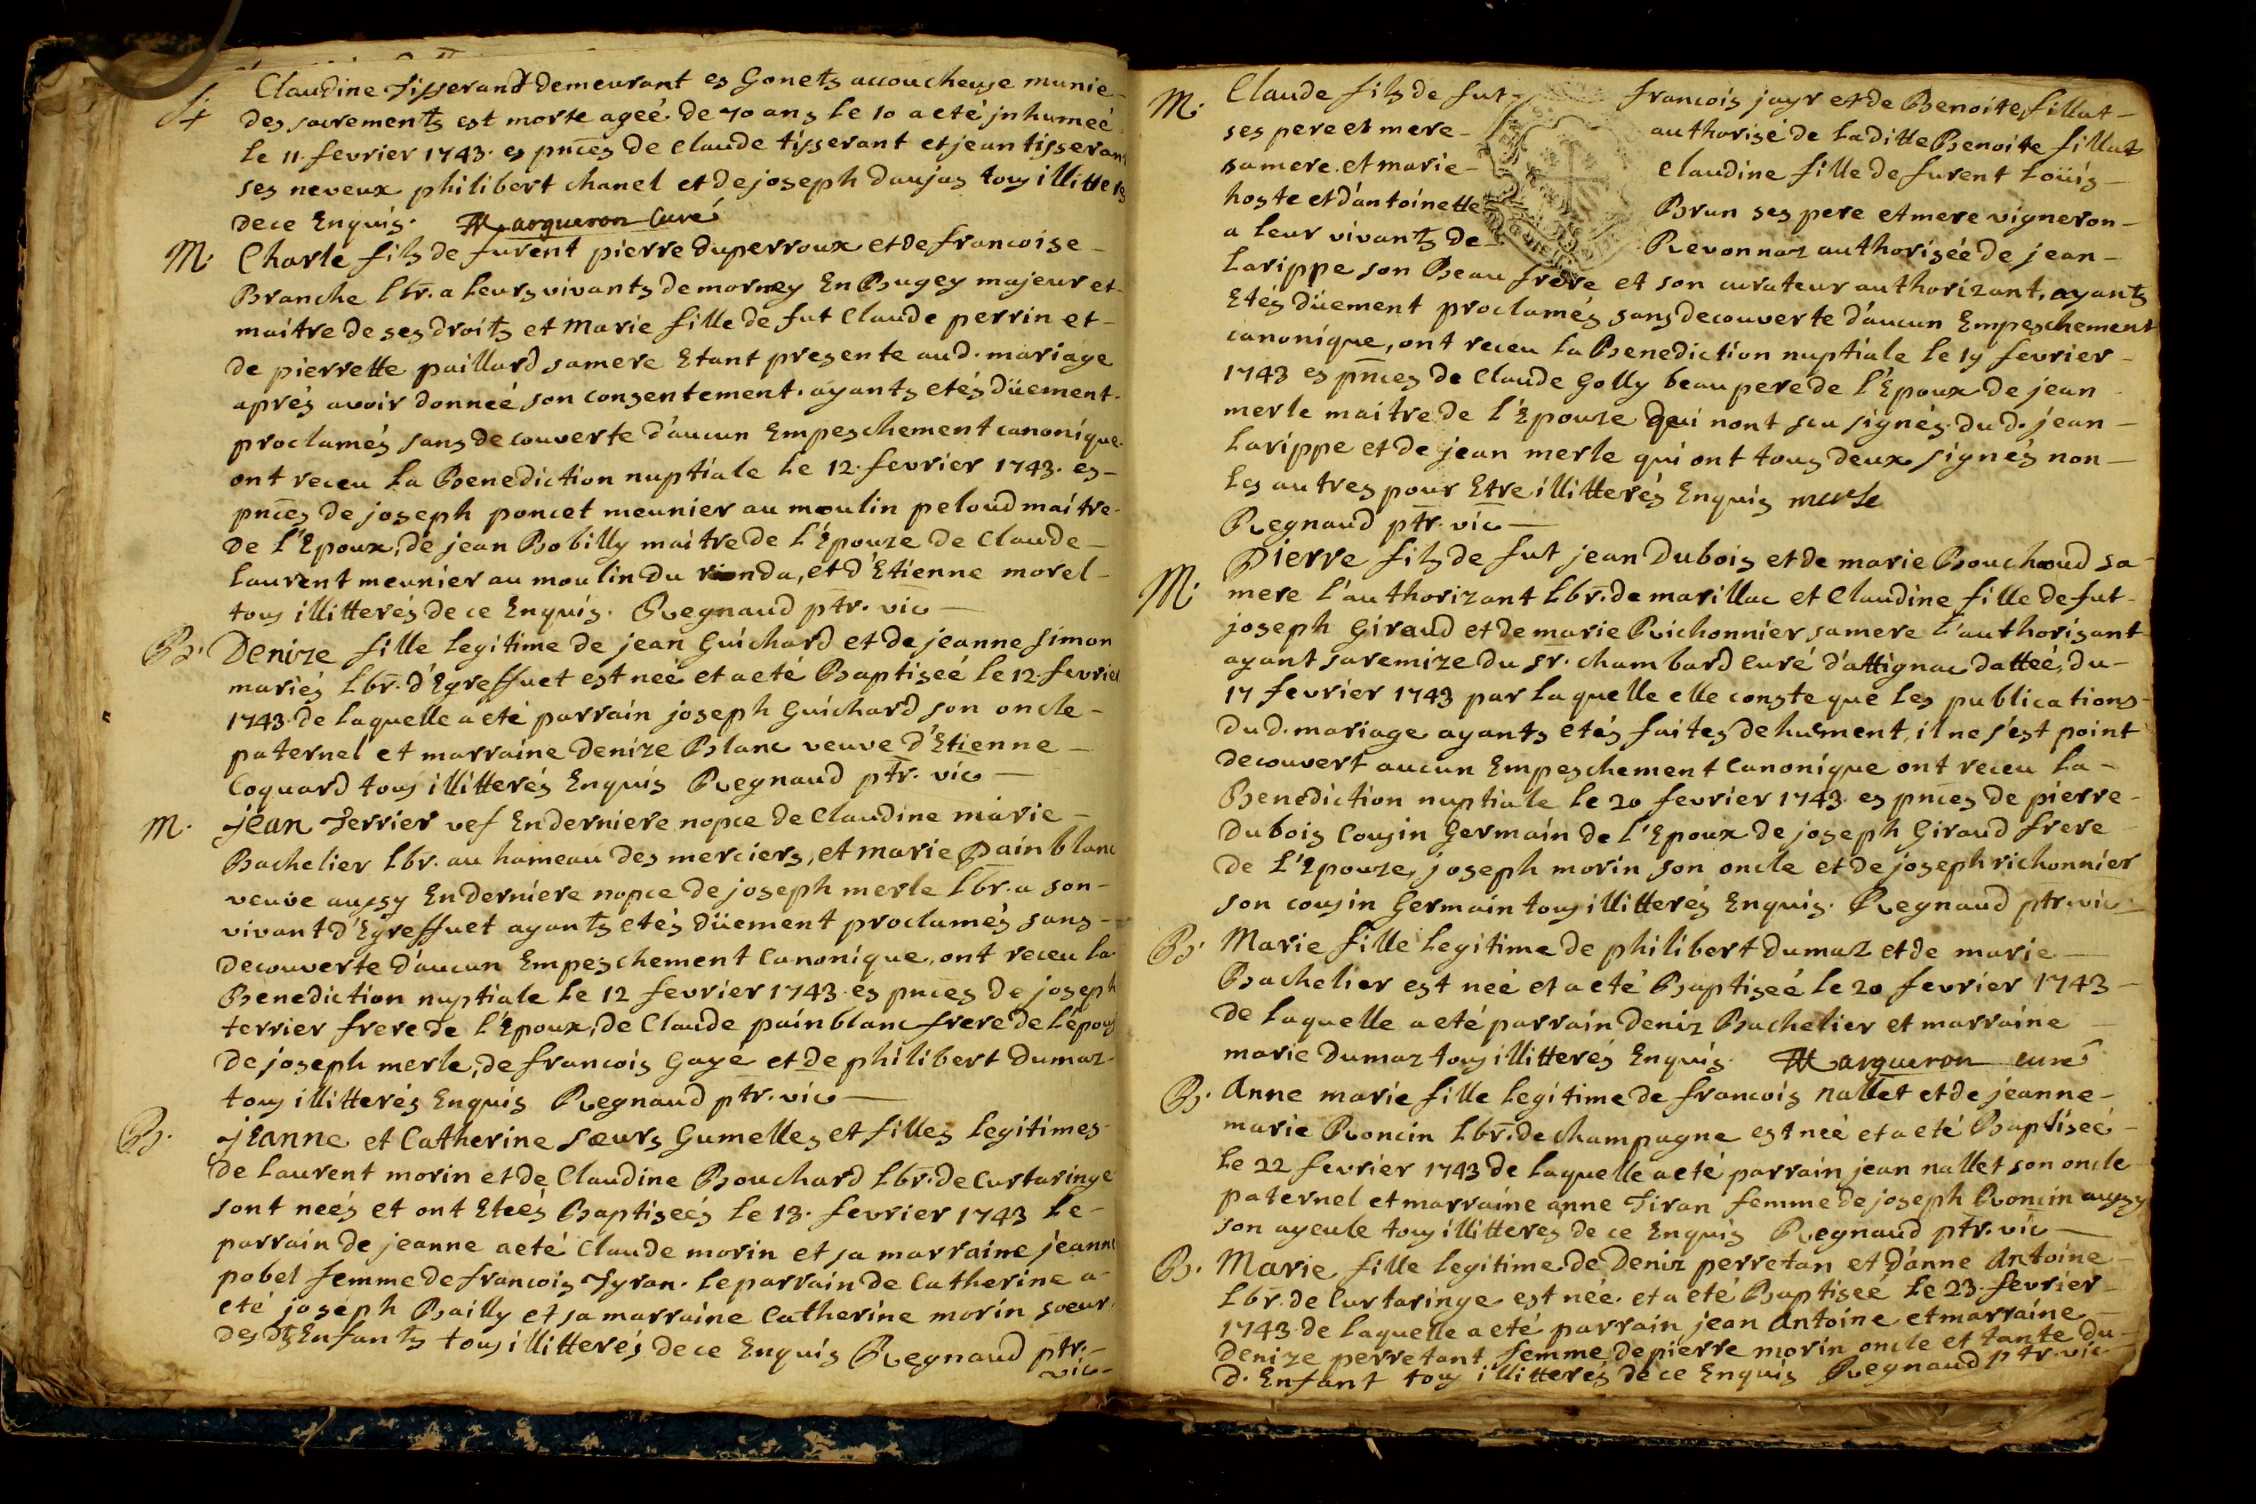 S. Claudine Tisserand demeurant es Gonets accoucheuse munie
des sacrements est morte ageé de 70 ans le 10 a eté jnhumeé
le 11. fevrier 1743. es pnces de Claude tisserant et jean tisseran
ses neveux philibert chanel et de joseph daujas tous illitteres
de ce Enquis. Marqueron Curé
M. Charle fils de furent pierre duperroux et de francoise
Branche lbr. a leurs vivants de mornay En Bugey majeur et
maitre de ses droits et Marie fille de fut Claude perrin et
de pierrette paillard sa mere Etant presente aud. mariage
aprés avoir donneé son consentement. ayants etés düement
proclamés sans decouverte d'aucun Empeschement canonique.
ont receu la Benediction nuptiale le 12. fevrier 1743. es
pnces de joseph poncet meunier au moulin peloud maitre
de l'Epoux, de jean Bobilly maitre de l'Epouze de Claude
laurent meunier au moulin du rionda, et d'Etienne morel
tous illitterés de ce Enquis. Regnaud ptr. vic
B. Denize fille legitime de jean Guichard et de jeanne Simon
mariés lbr. d'Egreffuet est neé et a eté Baptiseé le 12. fevrier
1743. de laquelle a eté parrain joseph Guichard son oncle
paternel et marraine Denize Blanc veuve d'Etienne
Coquard tous illitterés Enquis Regnaud ptr. vic
M. jean Terrier vef En derniere nopce de Claudine marie
Bachelier lbr. au hameau des merciers, et marie Painblanc
veuve aussy En derniere nopce de joseph merle lbr. a son
vivant d'Egreffuet ayants etés düement proclamés sans
decouverte d'aucun Empeschement Canonique, ont receu la
Benediction nuptiale le 12 fevrier 1743. es pnces de joseph
terrier frere de l'Epoux, de Claude painblanc frere de l'épouz
de joseph merle, de francois Gayé et de philibert Dumaz
tous illitterés Enquis Regnaud ptr. vic
B. jEanne et Catherine Sœurs Gumelles et filles legitimes
de laurent morin et de Claudine Bouchard lbr. de Curtaringe
sont neés et ont Eteés Baptiseés le 13. fevrier 1743 le
parrain de jeanne a eté Claude morin et sa marraine jeanne
pobel femme de francois Tyran. le parrain de Catherine a
eté joseph Bailly et sa marraine Catherine morin soeur
des dts Enfants tous illitterés de ce Enquis Regnaud ptr.
vic
M. Claude fils de fut francois jayr et de Benoite fillat
ses pere et mere authorisé de laditte Benoite fillat
sa mere. et marie Claudine fille de furent Loüis
hoste et d'antoinette Brun ses pere et mere vigneron
a leur vivants de Revonnaz authorisée de jean
larippe son Beau frere et son curateur authorizant, ayants
Etés düement proclamés sans decouverte d'aucun Empeschement
canonique, ont receu la Benediction nuptiale le 19 fevrier
1743 es pnces de Claude Golly beau pere de l'Epoux de jean
merle maitre de l'Epouze qui nont sceu signés. dud. jean
larippe et de jean merle qui ont tous deux signés non
les autres pour Etre illitterés Enquis merle
Regnaud ptr. vic
M. Pierre fils de fut jean Dubois et de marie Bouchaud sa
mere l'authorizant lbr. de marillac et Claudine fille de fut
joseph Giraud et de marie Richonnier sa mere l'authorisant
ayant sa remize du sr. chambard Curé d'attignac datteé, du
17 fevrier 1743 par laquelle elle conste que les publications
dud. mariage ayants etés faites dehument, il ne s'est point
decouvert aucun Empeschement Canonique ont receu la
Benediction nuptiale le 20 fevrier 1743. es pnces de pierre
dubois Cousin Germain de l'Epoux de joseph Giraud frere
de l'Epouze, joseph morin son oncle et de joseph richonnier
son cousin Germain tous illitterés Enquis. Regnaud ptr. vic
B. Marie fille legitime de philibert Dumaz et de marie
Bachelier est neé et a eté Baptiseé le 20 fevrier 1743
de laquelle a eté parrain Deniz Bachelier et marraine
marie Dumaz tous illitterés Enquis. Marqueron curé
B. Anne marie fille legitime de francois nallet et de jeanne
marie Roncin lbr. de champagne est neé et a eté Baptiseé
le 22 fevrier 1743 de laquelle a eté parrain jean nallet son oncle
paternel et marraine anne Tiran femme de joseph Roncin aussy
son ayeule tous illitterés de ce Enquis Regnaud ptr. vic
B. Marie fille legitime de Deniz perretan et d'anne Antoine
lbr. de Curtaringe est née. et a eté Baptiseé le 23. fevrier
1743. de laquelle a eté parrain jean Antoine et marraine
Denize perretant femme de pierre morin oncle et tante du
d. Enfant tous illitterés de ce Enquis Regnaud ptr. vic